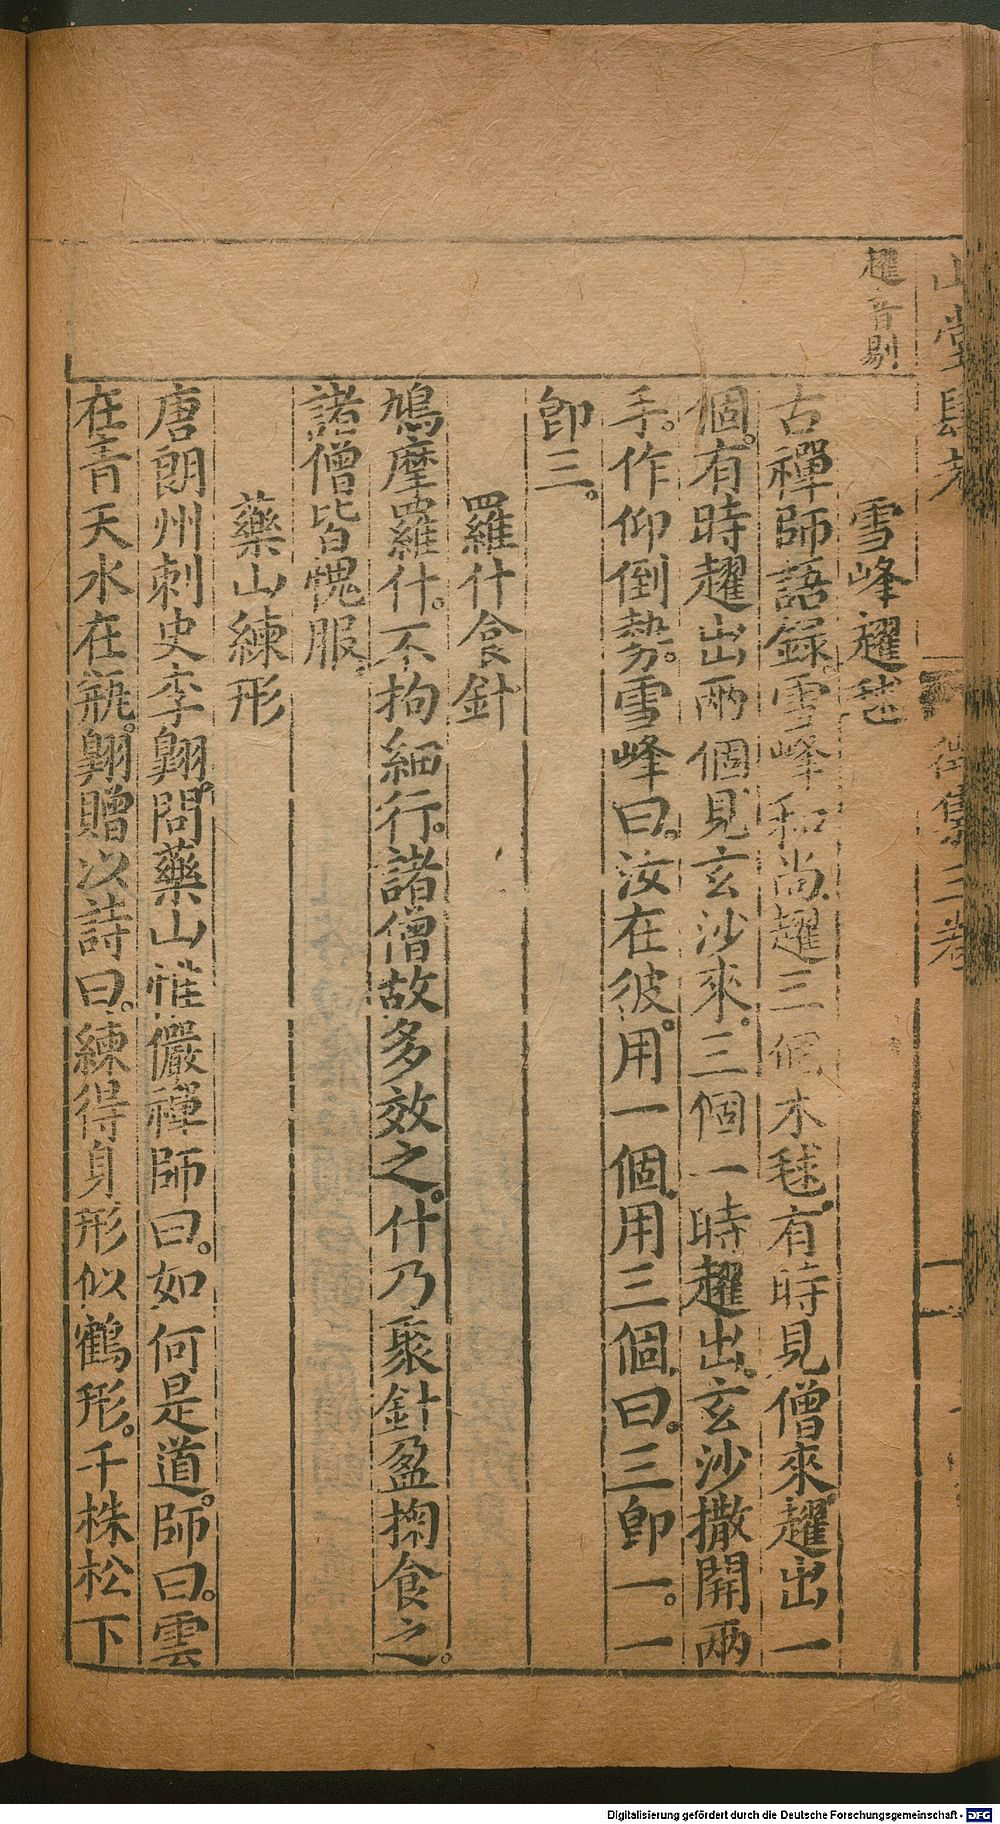 山堂肆考
徵集三卷
趯音剔
雪峰趯毬
古禪師語錄。雪峰和尚趯三個木毬。有時見僧來。趯出一
個。有時趯出兩個。見玄沙來。三個一時趯出。玄沙撒開兩
手。作仰倒勢。雪峰曰。汝在彼。用一個。用三個。曰。三卽一。一
卽三。
羅什食針
鳩摩羅什。不拘細行。諸僧故多效之。什乃聚針盈掬食之。
諸僧皆愧服。
藥山練形
唐朗州刺史李翺。問藥山惟儼禪師曰。如何是道。師曰。雲
在青天水在瓶。翺贈以詩曰。練得身形似鶴形。千株松下
Digitalisierung gefördert durch die Deutsche Forschungsgemeinschaft - DFG